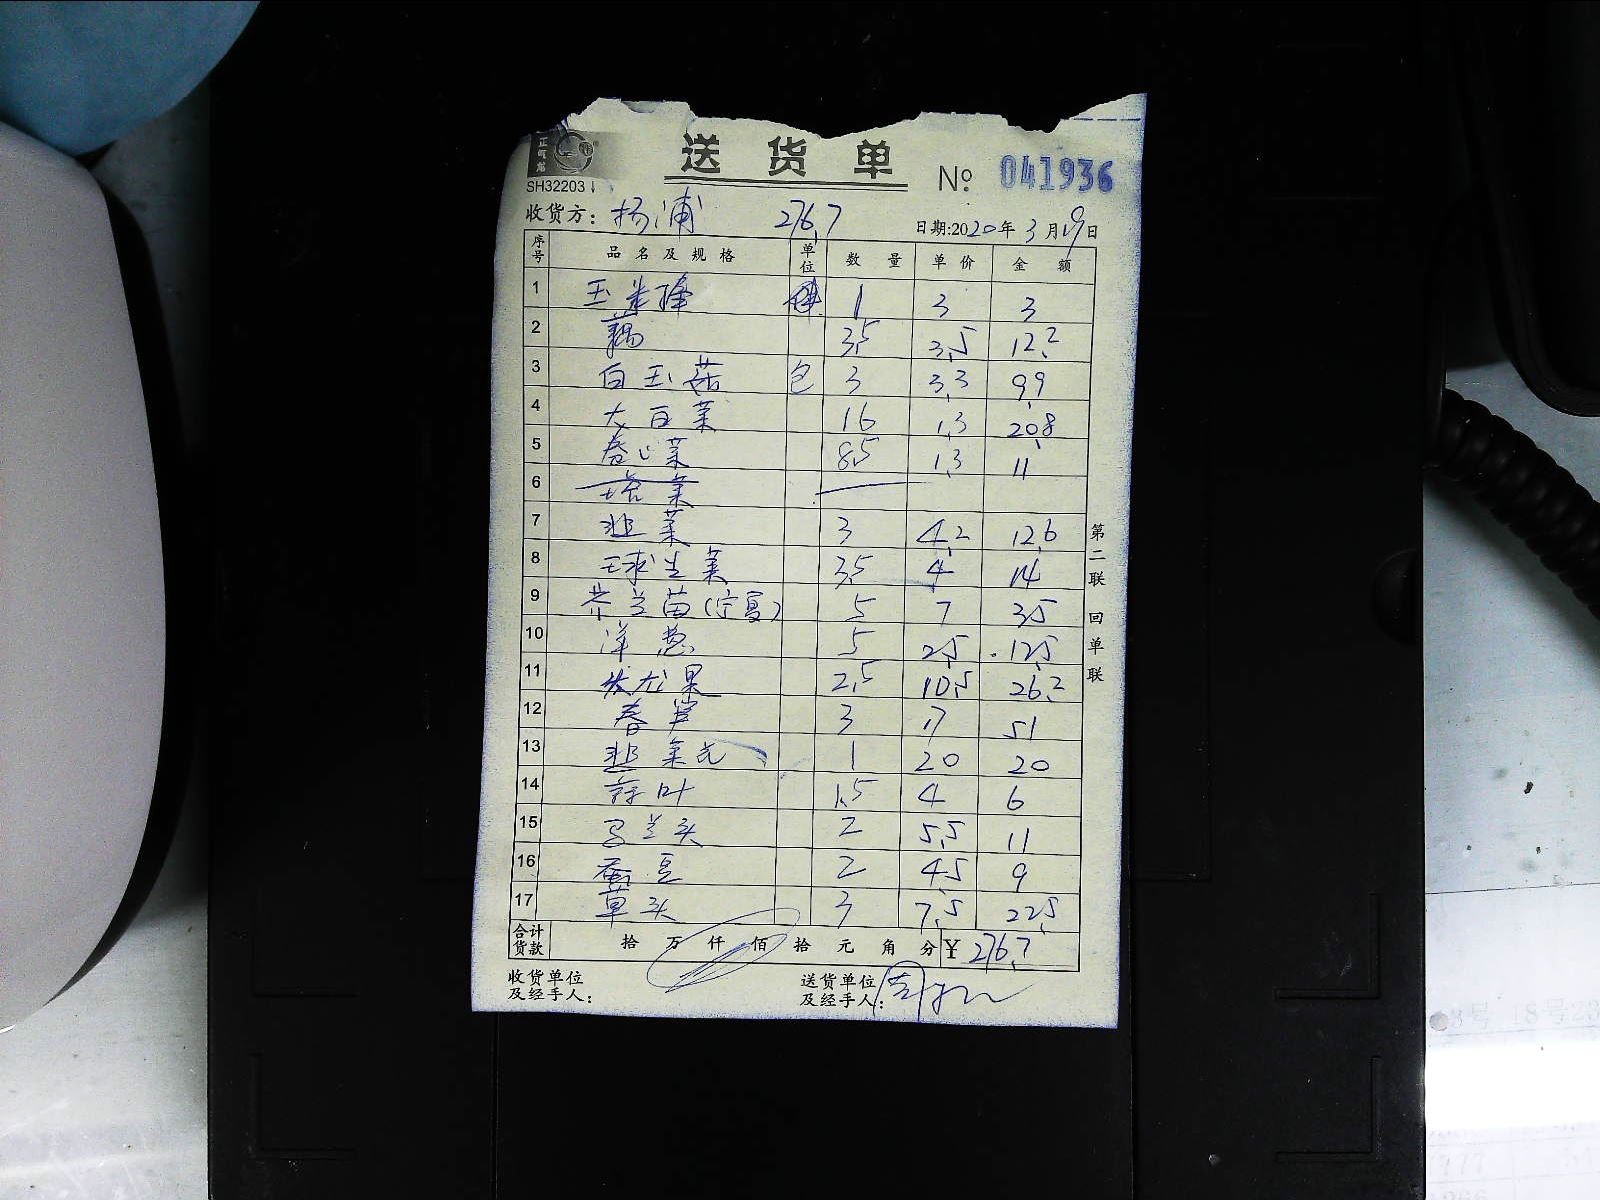 正气龙
送货单
SH32203
№ 041936
收货方：杨浦 276.7 日期:2020年3月19日
序号 品名及规格 单位 数量 单价 金额
1 玉米棒 1 3 3
2 藕 3.5 3.5 12.2
3 白玉菇 包 3 3.3 9.9
4 大白菜 16 1.3 20.8
5 卷心菜 8.5 1.3 11
6 塔菜
7 韭菜 3 4.2 12.6
8 球生菜 3.5 4 14
9 芥兰苗(宁夏) 5 7 35
10 洋葱 5 2.5 12.5
11 火龙果 2.5 10.5 26.2
12 春笋 3 17 51
13 韭菜花 1 20 20
14 荷叶 1.5 4 6
15 马兰头 2 5.5 11
16 蚕豆 2 4.5 9
17 草头 3 7.5 22.5
合计货款 拾万仟佰拾元角分 ¥ 276.7
收货单位及经手人：
送货单位及经手人：
第二联 回单联